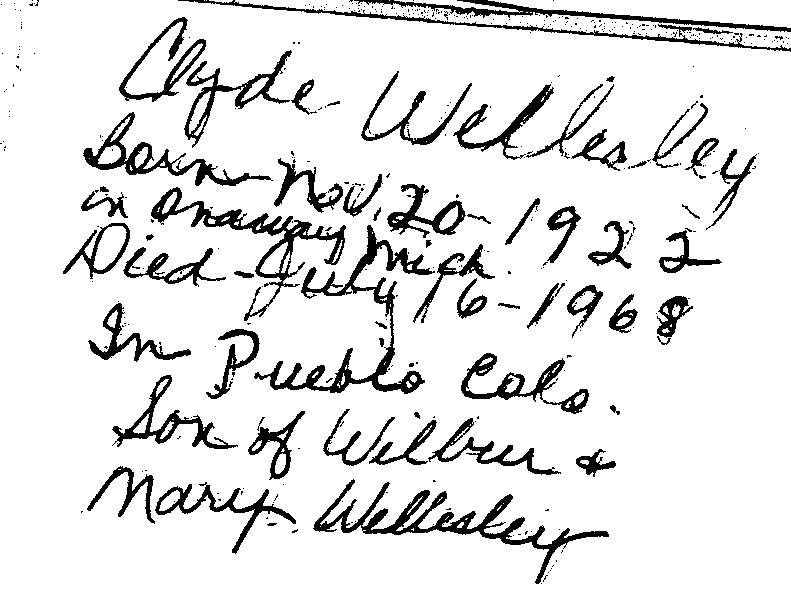 Clyde Wellesley
Born-Nov. 20-1922
in Onaway Mich.
Died-July 16-1968
In Pueblo Colo.
Son of Wilbur &
Mary Wellesley